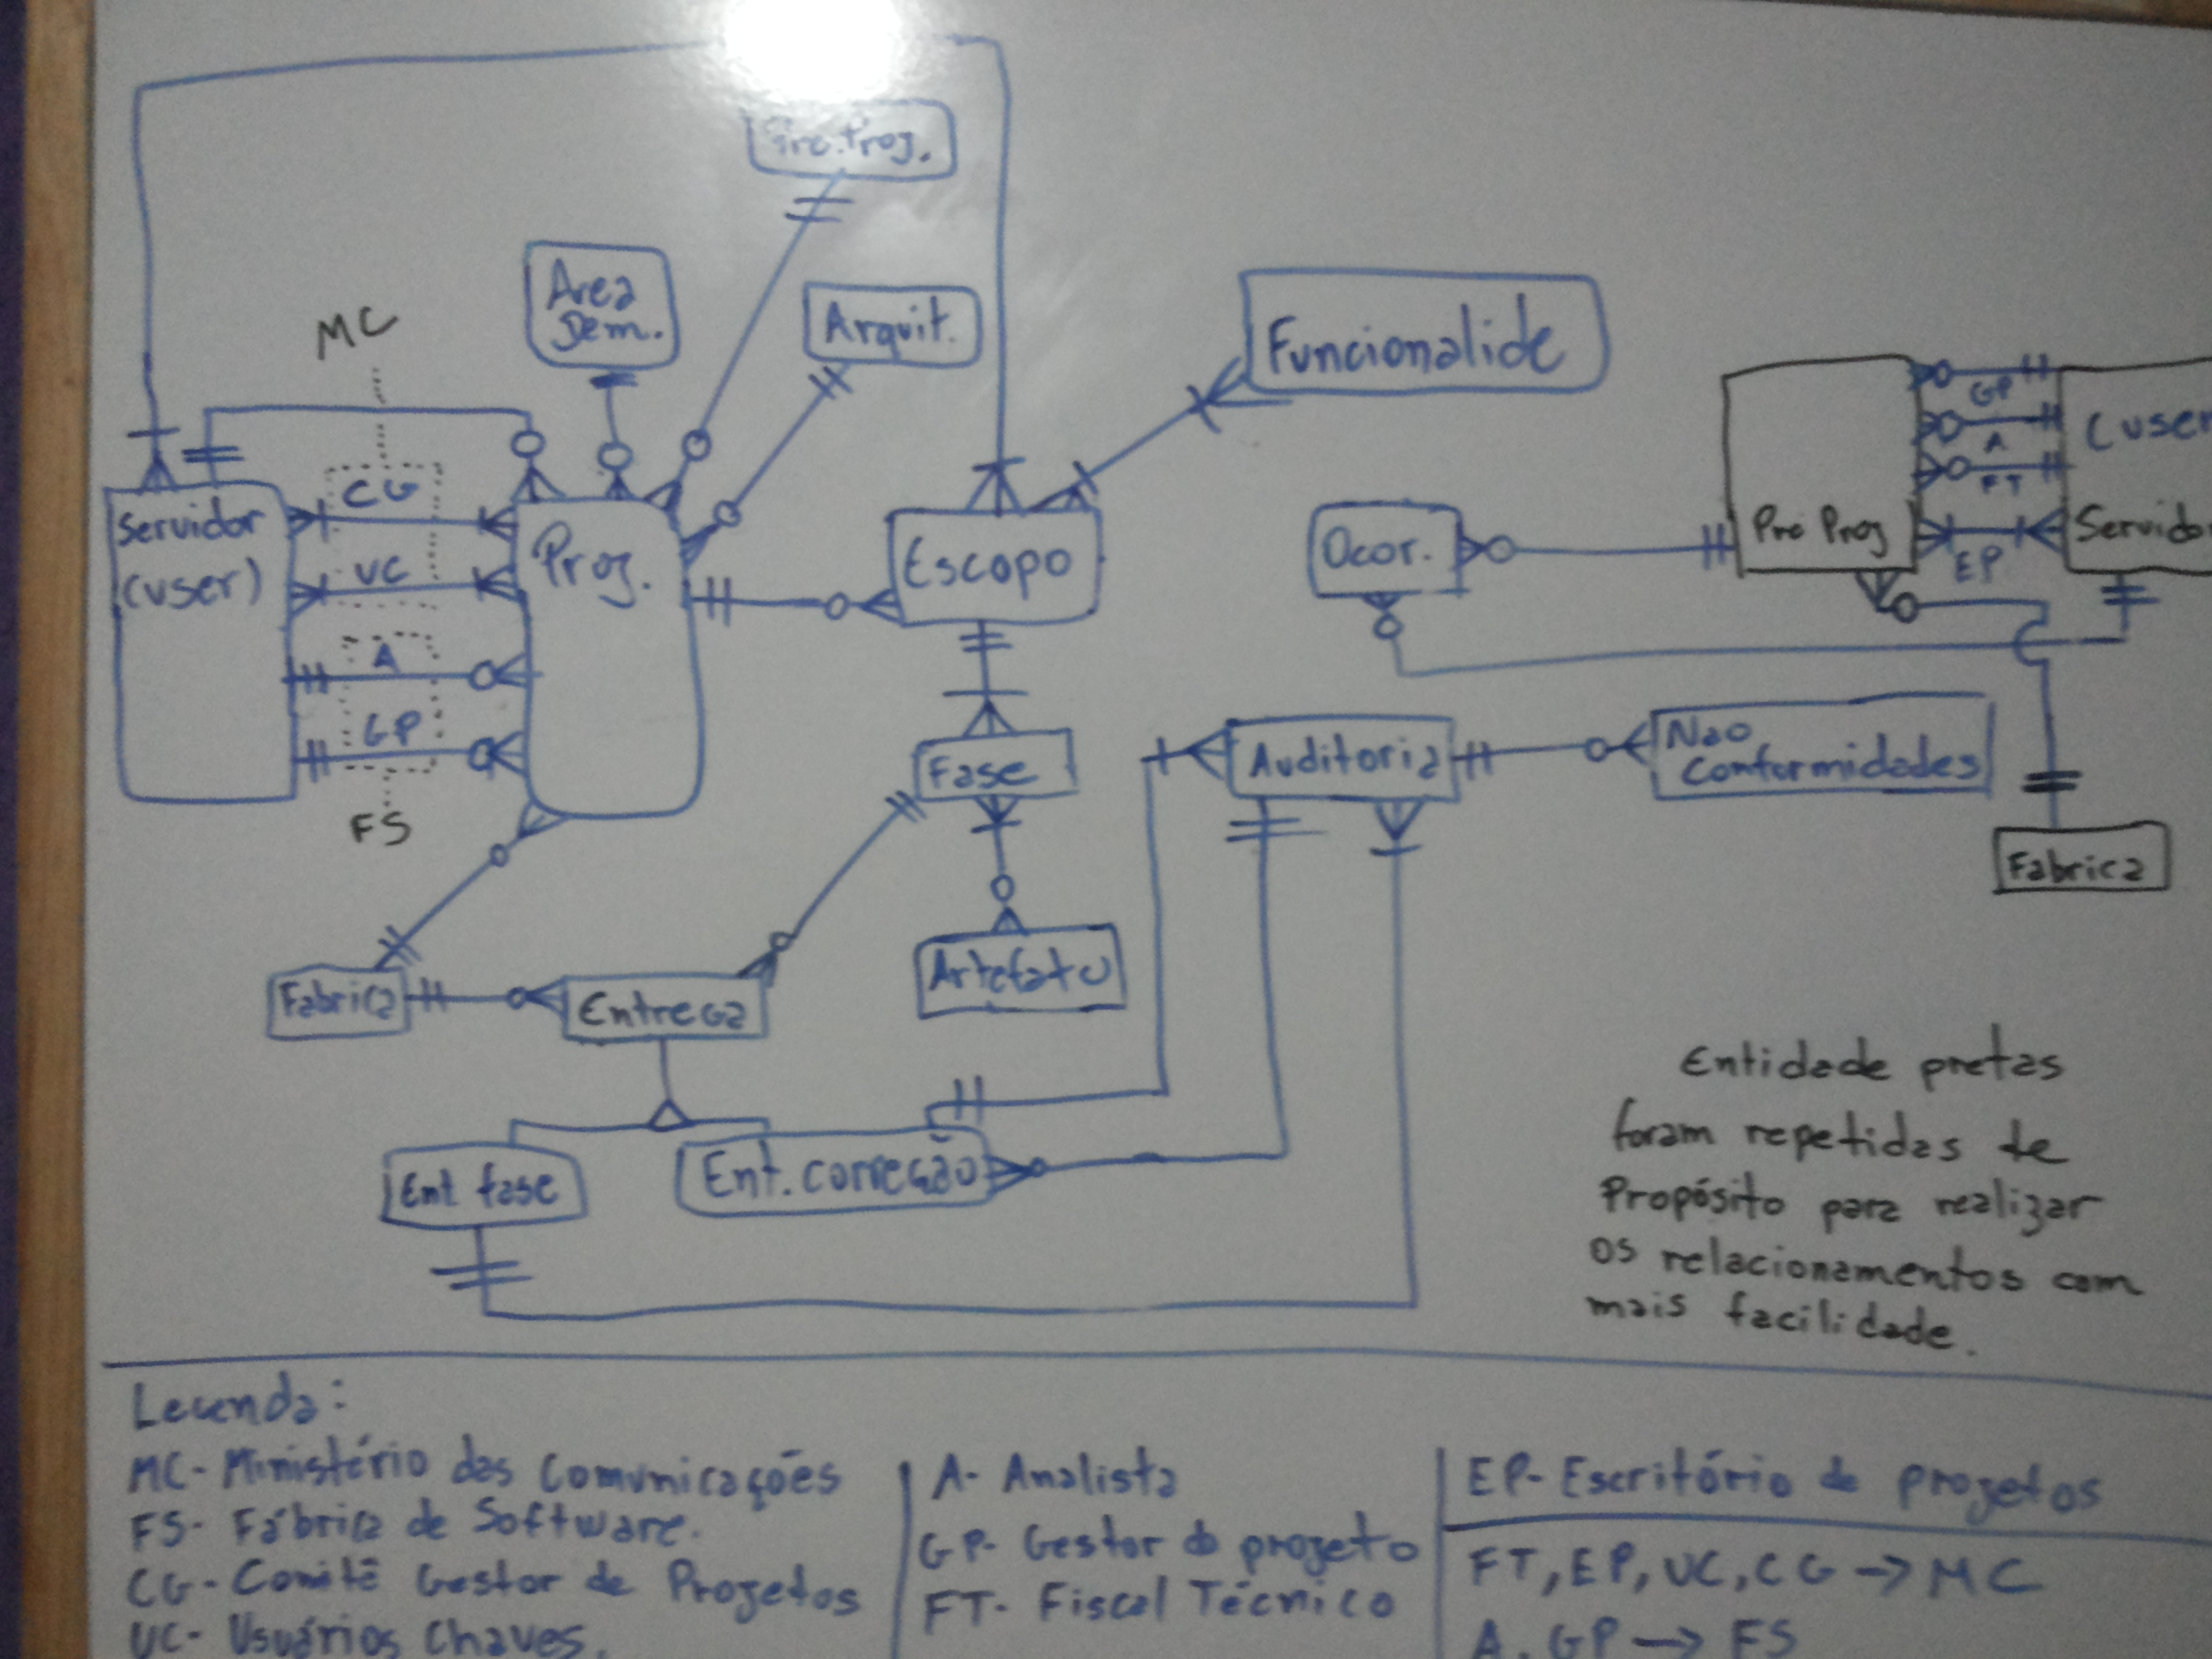 Pre. Proj.
Area
Dem.
Arquit.
MC
Funcionalide
CG
UC
A
GP
FS
Servidor
(user)
Proj.
Escopo
Ocor.
Pre Proj
GP
A
FT
EP
(user
Servido
Fase
Auditoria
Nao
Conformidades
Fabrica
Artefato
Fabrica
Entrega
Ent. fase
Ent. correção
Entidade pretas
foram repetidas de
Propósito para realizar
os relacionamentos com
mais facilidade.
Legenda:
MC- Ministério das Comunicações
FS- Fábrica de Software.
CG- Comitê Gestor de Projetos
UC- Usuários Chaves.
A- Analista
GP- Gestor do projeto
FT- Fiscal Técnico
EP- Escritório de projetos
FT, EP, UC, CG -> MC
A, GP -> FS